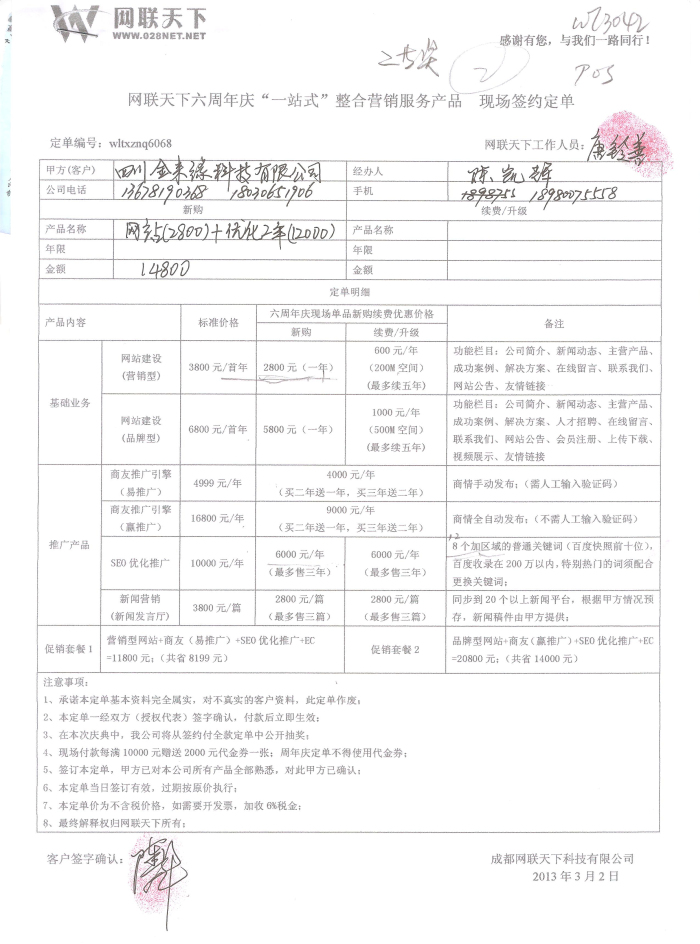 网联天下
WWW.028NET.NET
wl3042
感谢有您，与我们一路同行！
二等奖
2
POS
网联天下六周年庆“一站式”整合营销服务产品 现场签约定单
定单编号：wltxznq6068
网联天下工作人员：
甲方(客户) 四川金来缘科技有限公司 经办人 陈凯
公司电话 13678190368 18030651906 手机 1898755 18980075558
新购 续费/升级
产品名称 网站(2800)+优化2年(12000) 产品名称
年限 年限
金额 14800 金额
定单明细
产品内容 标准价格 六周年庆现场单品新购续费优惠价格 备注
新购 续费/升级
基础业务
网站建设
(营销型)
3800 元/首年
2800 元（一年）
600 元/年
(200M 空间)
(最多续五年)
功能栏目：公司简介、新闻动态、主营产品、
成功案例、解决方案、在线留言、联系我们、
网站公告、友情链接
网站建设
(品牌型)
6800 元/首年
5800 元（一年）
1000 元/年
(500M 空间)
(最多续五年)
功能栏目：公司简介、新闻动态、主营产品、
成功案例、解决方案、人才招聘、在线留言、
联系我们、网站公告、会员注册、上传下载、
视频展示、友情链接
推广产品
商友推广引擎
（易推广）
4999 元/年
4000 元/年
（买二年送一年，买三年送二年）
商情手动发布；（需人工输入验证码）
商友推广引擎
（赢推广）
16800 元/年
9000 元/年
（买二年送一年，买三年送二年）
商情全自动发布；（不需人工输入验证码）
SEO 优化推广
10000 元/年
6000 元/年
（最多售三年）
6000 元/年
（最多售三年）
+2
8 个加区域的普通关键词（百度快照前十位），
百度收录在 200 万以内，特别热门的词须配合
更换关键词；
新闻营销
(新闻发言厅)
3800 元/篇
2800 元/篇
（最多售三篇）
2800 元/篇
（最多售三篇）
同步到 20 个以上新闻平台，根据甲方情况预
存，新闻稿件由甲方提供；
促销套餐 1
营销型网站+商友（易推广）+SEO 优化推广+EC
=11800 元；（共省 8199 元）
促销套餐 2
品牌型网站+商友（赢推广）+SEO 优化推广+EC
=20800 元；（共省 14000 元）
注意事项：
1、承诺本定单基本资料完全属实，对不真实的客户资料，此定单作废；
2、本定单一经双方（授权代表）签字确认，付款后立即生效；
3、在本次庆典中，我公司将从签约付全款定单中公开抽奖；
4、现场付款每满 10000 元赠送 2000 元代金券一张；周年庆定单不得使用代金券；
5、签订本定单，甲方已对本公司所有产品全部熟悉，对此甲方已确认；
6、本定单当日签订有效，过期按原价执行；
7、本定单价为不含税价格，如需要开发票，加收 6%税金；
8、最终解释权归网联天下所有；
客户签字确认：
成都网联天下科技有限公司
2013 年 3 月 2 日